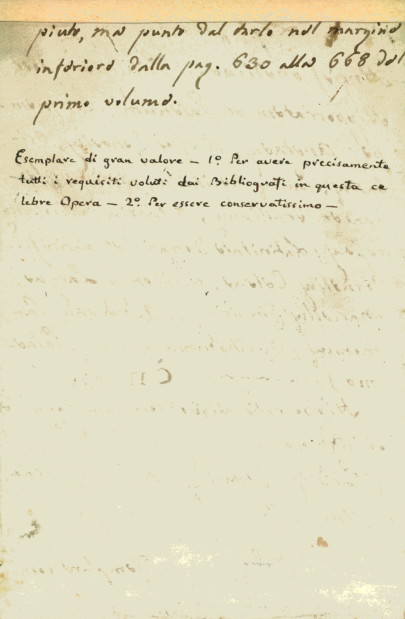 piuto, ma punto dal tarlo nel margine
inferiore dalla pag. 630 alla 668 del
primo volume.
Esemplare di gran valore – 1º Per avere precisamente
tutti i requisiti voluti dai Bibliografi in questa ce
lebre Opera – 2º Per essere conservatissimo –